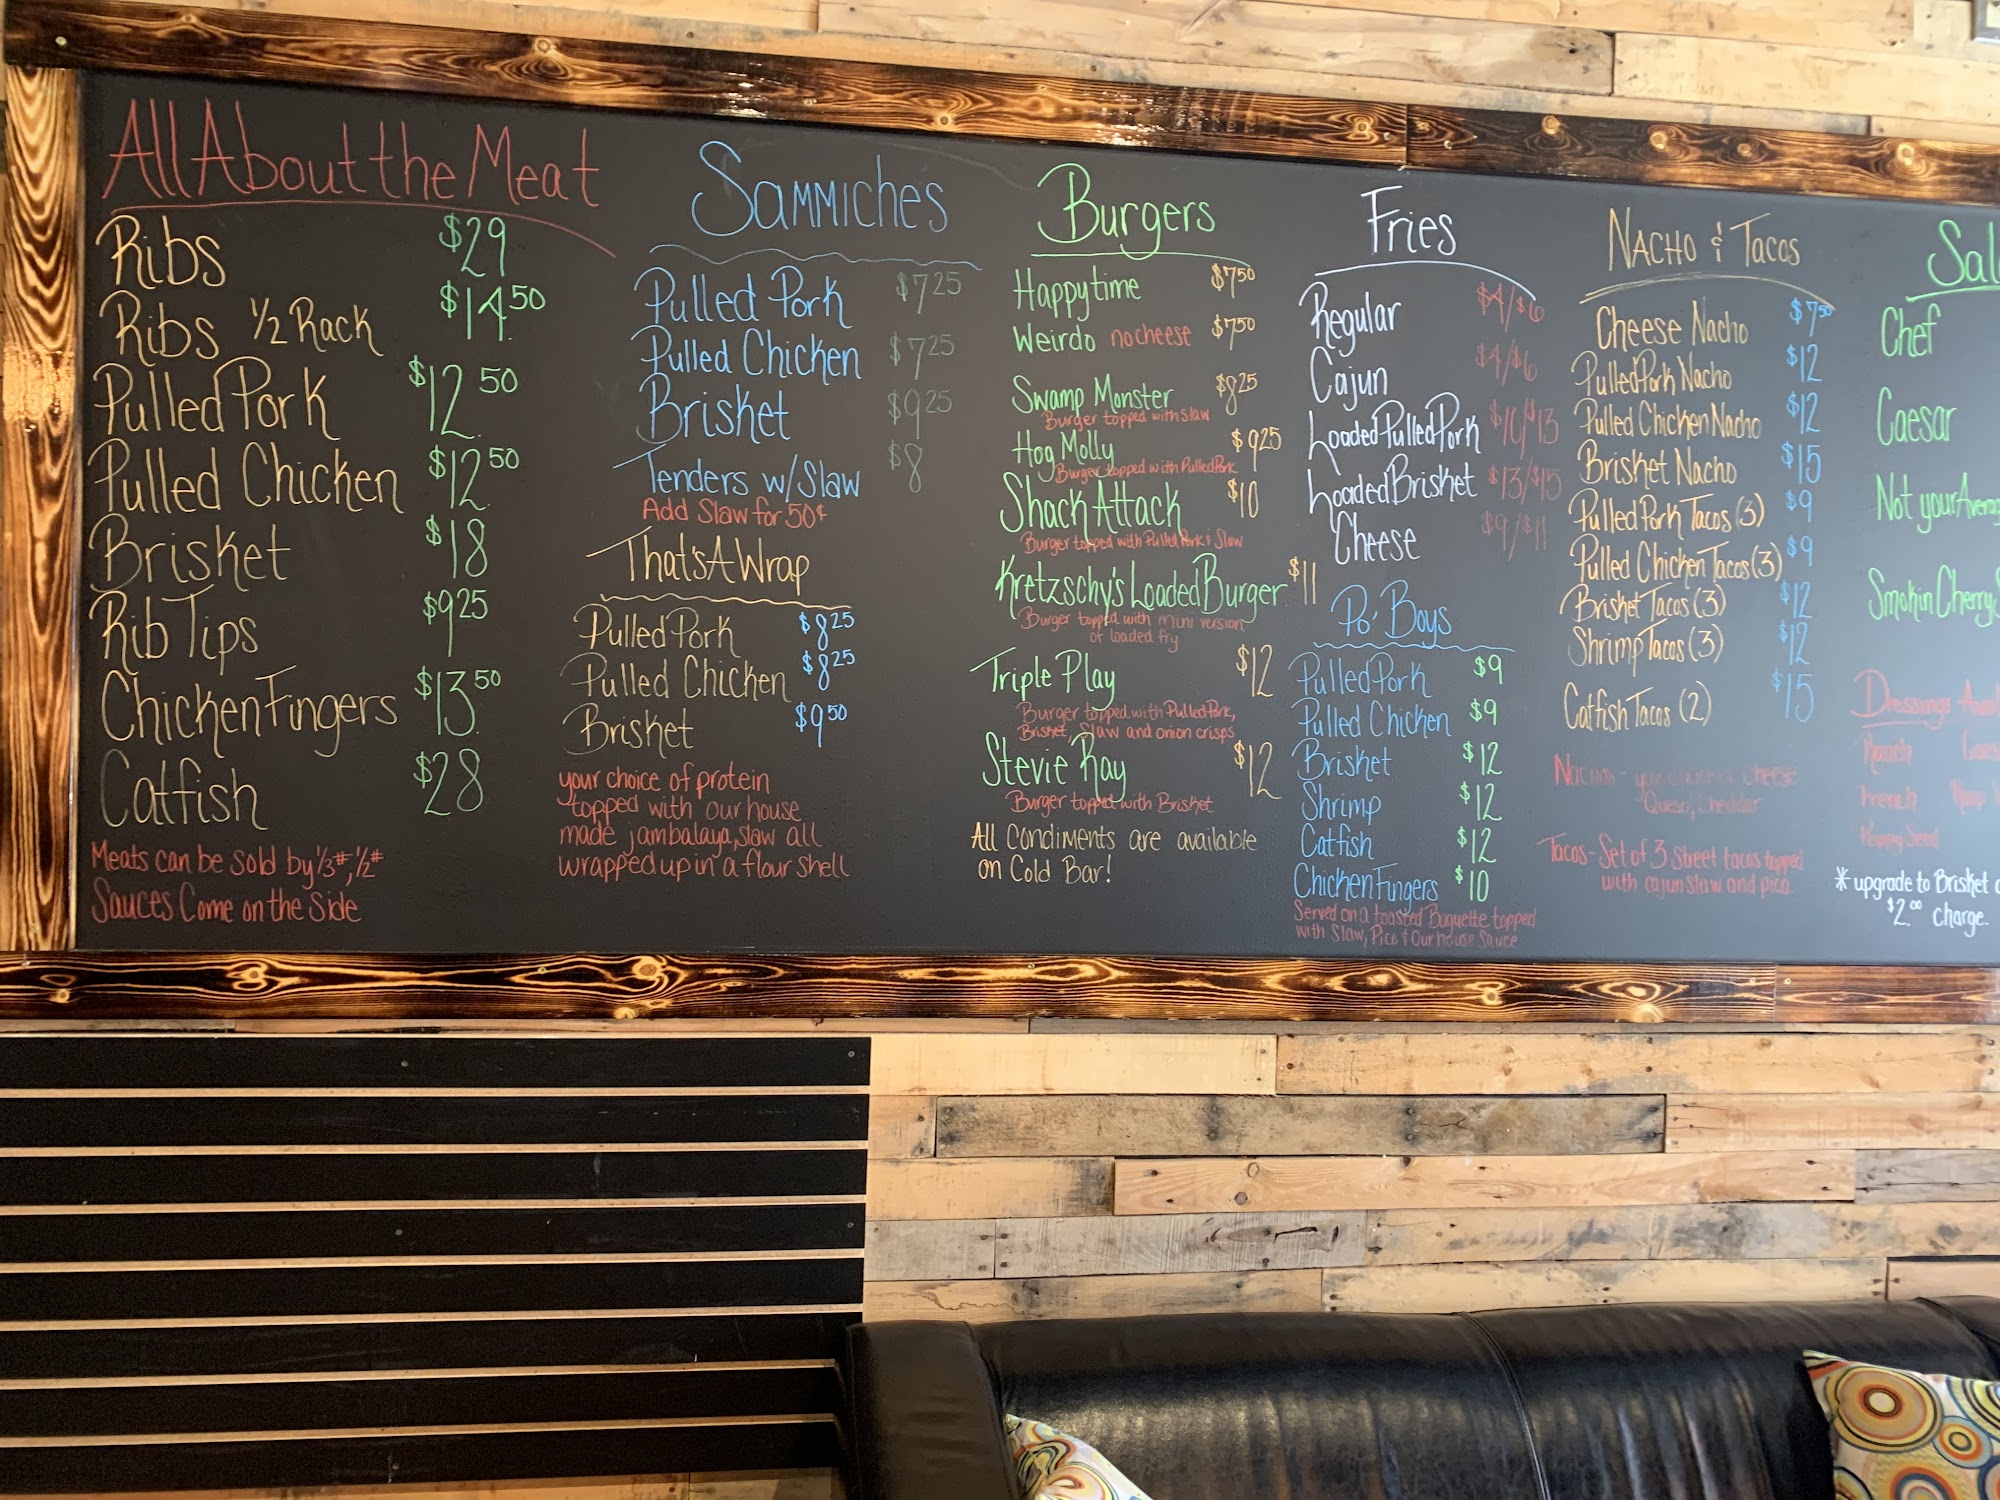 All About the Meat
Ribs $29
Ribs 1/2 Rack $14.50
Pulled Pork $12.50
Pulled Chicken $12.50
Brisket $18
Rib Tips $9.25
Chicken Fingers $13.50
Catfish $28
Meats can be sold by 1/3#, 1/2#
Sauces Come on the side
Sammiches
Pulled Pork $7.25
Pulled Chicken $7.25
Brisket $9.25
Tenders w/Slaw $8
Add Slaw for 50¢
That's A Wrap
Pulled Pork $8.25
Pulled Chicken $8.25
Brisket $9.50
your choice of protein
topped with our house
made jambalaya, slaw all
wrapped up in a flour shell
Burgers
Happytime $7.50
Weirdo no cheese $7.50
Swamp Monster $8.25
Burger topped with slaw
Hog Molly $9.25
Burger topped with Pulled Pork
Shack Attack $10
Burger topped with Pulled Pork & Slaw
Kretzschy's Loaded Burger $11
Burger topped with mini version
of loaded fry
Triple Play $12
Burger topped with Pulled Pork,
Brisket, Slaw and onion crisps
Stevie Ray $12
Burger topped with Brisket
All Condiments are available
on Cold Bar!
Fries
Regular $4/$6
Cajun $4/$6
Loaded Pulled Pork $10/$13
Loaded Brisket $13/$15
Cheese $9/$11
Po' Boys
Pulled Pork $9
Pulled Chicken $9
Brisket $12
Shrimp $12
Catfish $12
Chicken Fingers $10
Served on a toasted Baguette topped
with Slaw, Pico & Our house Sauce
Nacho & Tacos
Cheese Nacho $7.50
Pulled Pork Nacho $12
Pulled Chicken Nacho $12
Brisket Nacho $15
Pulled Pork Tacos (3) $9
Pulled Chicken Tacos (3) $9
Brisket Tacos (3) $12
Shrimp Tacos (3) $12
Catfish Tacos (2) $15
Nachos - your choice of cheese
Queso, Cheddar
Tacos - Set of 3 street tacos topped
with cajun slaw and pico
Sal
Chef
Caesar
Not your Averag
Smokin Cherry S
Dressings Avail
Ranch
French
Poppy Seed
* upgrade to Brisket
$2.00 charge.